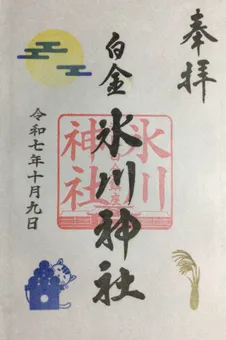 奉拝
白金
氷川神社
氷川
神社
令和七年十月九日